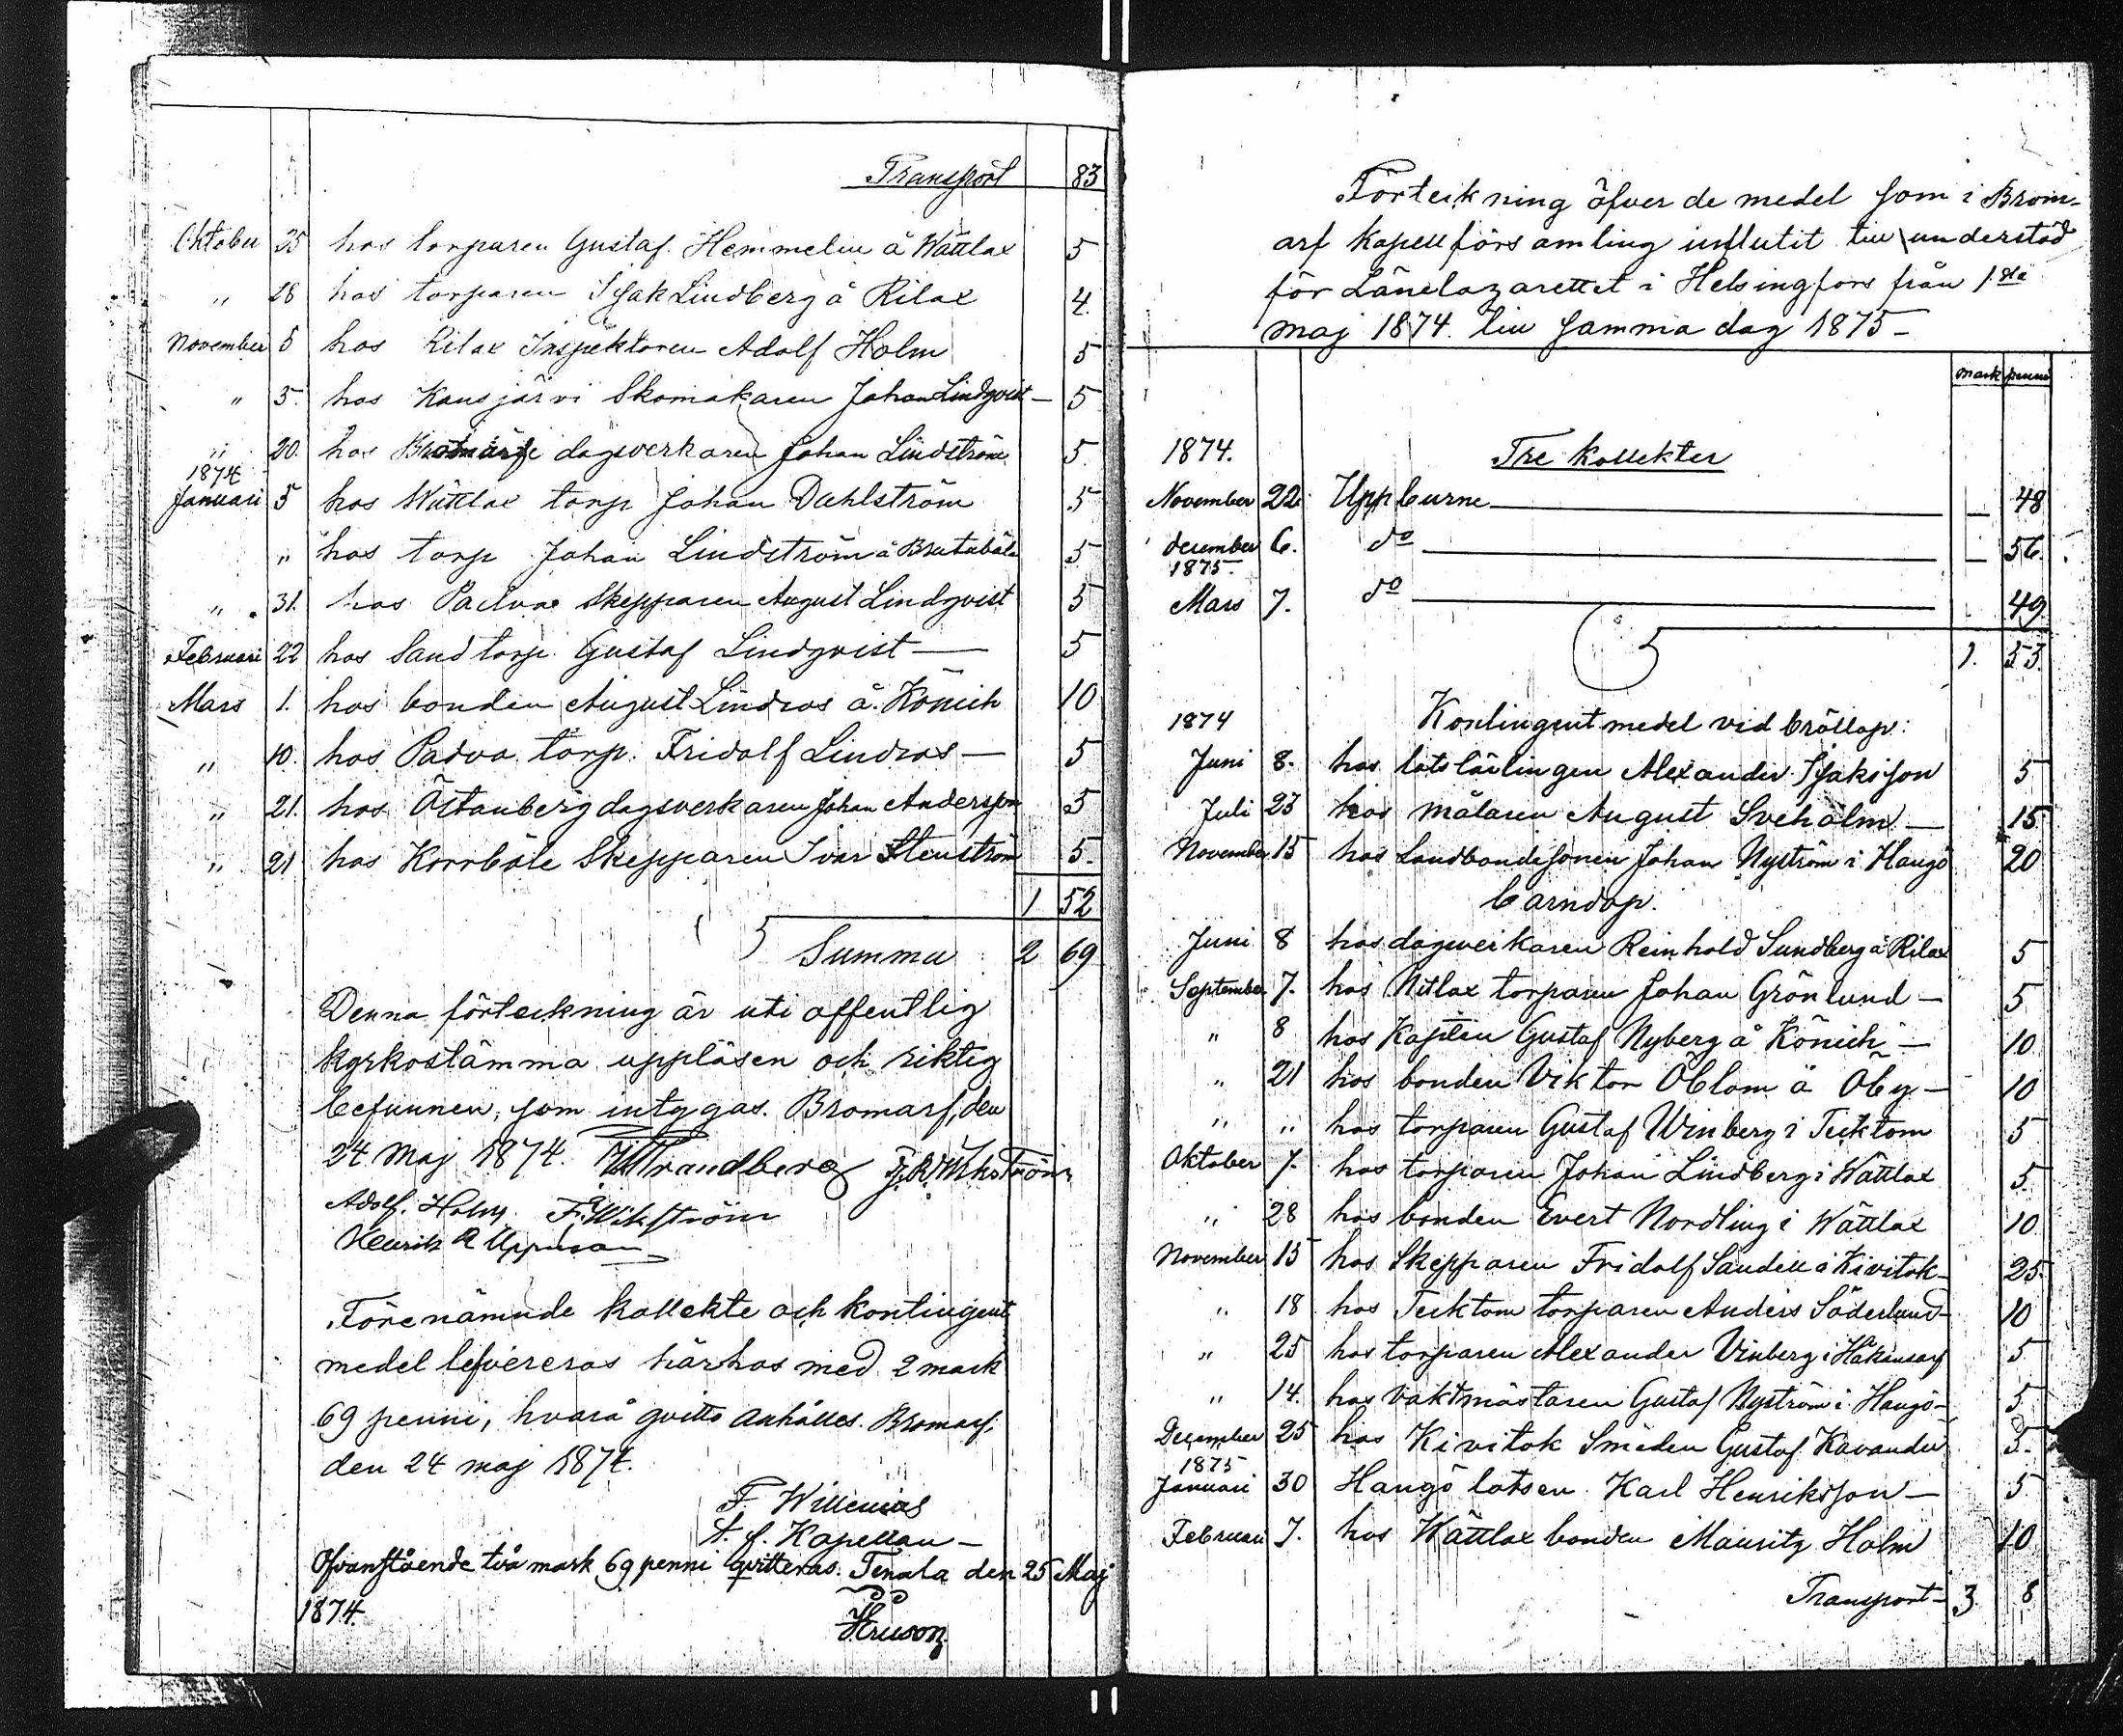 Transport 83
Oktober 25 hos torparen Gustaf Hemmelin å Wättlax 5
" 28 hos torparen Isak Lindberg å Rilax 4.
November 5 hos Rilax Inspektoren Adolf Holm 5
" 5. hos Kansjärvi Skomakaren Johan Lindqvist — 5
" 20. hos dagsverkaren Johan Lindström 5.
1874
Januari 5 hos Wättlax torp Johan Dahlström 5
" hos torp Johan Lindström å 5
" 31. hos Padvae Skepparen August Lindqvist 5
Februari 22 hos Sand torp. Gustaf Lindqvist — 5
Mars 1. hos bonden August Lindros å Könich 10
" 10. hos Padva torp. Fridolf Lindros — 5
" 21. hos Östanberg dagsverkaren Johan Andersson 5
" 21 hos Korrböle Skepparen Ivar Stenström 5.
1 52
Summa 2 69
Denna förteckning är uti offentlig
kyrkostämma uppläsen och riktig
befunnen, som intygas. Bromarf, den
24 Maj 1874. Strandberg Wikström
Adolf. Holm F. Wikström
Henrik
Förenämnde kollekte och kontingent
medel lefvereras härhos med 2 mark
69 penni, hvarå qvitto anhålles. Bromarf.
den 24 maj 1874.
F. Willenius
t. f. Kapellan —
Ofvanstående två mark 69 penni qvitteras. Tenala den 25 Maj
1874.
Förteckning öfver de medel som i Brom-
arf Kapellförsamling influtit till understöd
för Länelazarettet i Helsingfors från 1sta
maj 1874. till samma dag 1875 —
mark penni
1874. Tre Kollekter
November 22. Uppburne — 48
december 6. do — 56.
1875.
Mars 7. do — 49
1. 53.
1874 Kontingent medel vid bröllop:
Juni 8. hos lotslärlingen Alexander Isaksson 5
Juli 23 hos målaren August Sveholm — 15
November 15 hos Landbondesonen Johan Nyström i Hangö 20
barndop.
Juni 8 hos dagsverkaren Reinhold Sundberg å Rilax 5
September 7. hos Nitlax torparen Johan Grönlund — 5
" 8 hos Kapten Gustaf Nyberg å Könich — 10
" 21 hos bonden Viktor Öblom å Öby — 10
" " hos torparen Gustaf Winberg i Tecktom 5
Oktober 7. hos torparen Johan Lindberg i Wättlax 5
" 28 hos bonden Evert Nordling i Wättlax 10
November 15 hos Skepparen Fridolf Sandell å Kivitok — 25.
" 18 hos Tecktom torparen Anders Söderlund — 10
" 25 hos torparen Alexander Vinberg i Håkansarf 5
" 14. hos vaktmästaren Gustaf Nyström i Hangö — 5
December 25 hos Kivitok Smeden Gustaf Kavander 5.
1875
Januari 30 Hangö lotsen Karl Henriksson — 5
Februari 7. hos Wättlax bonden Mauritz Holm 10
Transport — 3. 8